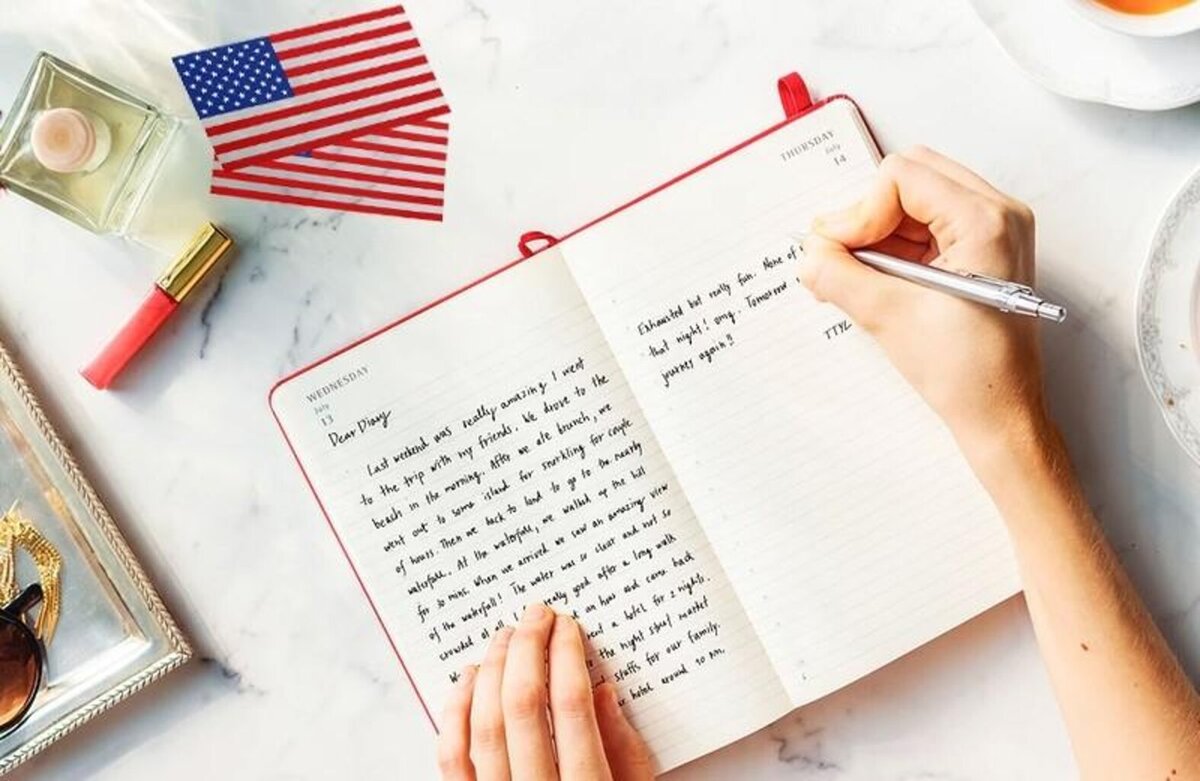 WEDNESDAY
July
13
Dear Diary
Last weekend was really amazing I went
to the trip with my friends. We drove to the
beach in the morning. After we ate brunch, we
went out to some island for snorkling for couple
of hours. Then we back to land to go to the nearby
waterfall. At the waterfall, we walked up the hill
for 30 mins. When we arrived we saw an amazing view
of the waterfall! The water was so clear and not so
crowded at all really good after a long walk
an hour and came back
a hotel for 2 nights.
the night street market
stuffs for our family.
hotel around 10 pm.
THURSDAY
July
14
Exhausted but really fun. None of
that night! omg. Tomorrow
journey again!!
TTYL